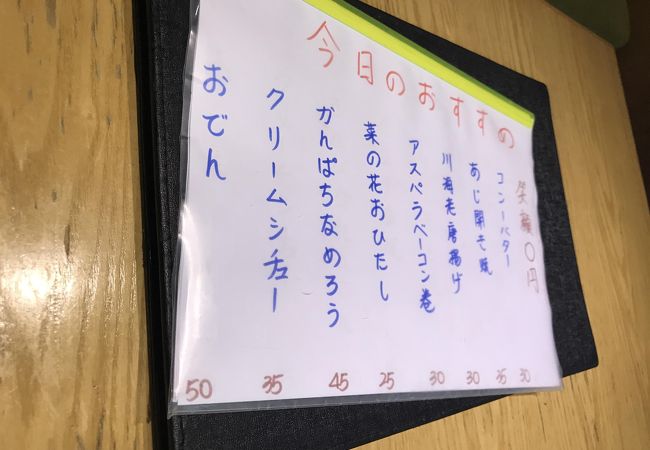 今日のおすすめ
笑顔〇円
コンーバター 30
あじ開き焼 35
川海老唐揚げ 30
アスパラベーコン巻 30
菜の花おひたし 25
かんぱちなめろう 45
クリームシチュー 35
おでん 50